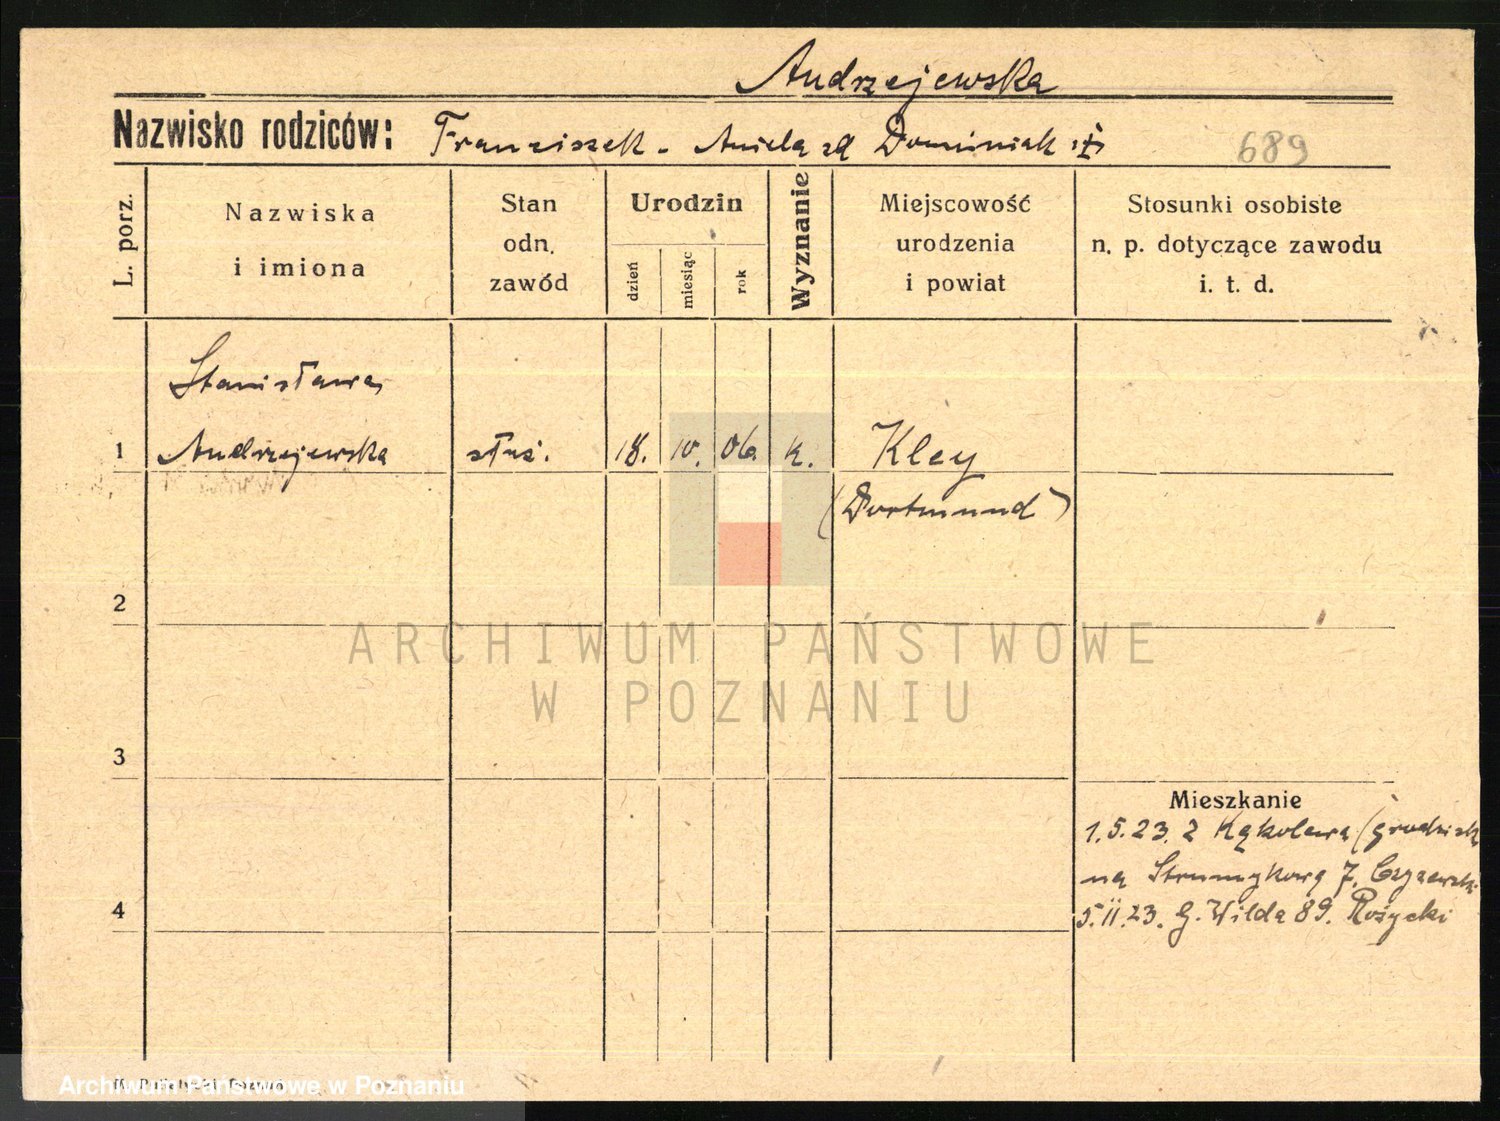 Andrzejewska
Nazwisko rodziców: Franciszek - Aniela zd Dominiak
689
L. porz.
Nazwiska
i imiona
Stan
odn.
zawód
Urodzin
dzień
miesiąc
rok
Wyznanie
Miejscowość
urodzenia
i powiat
Stosunki osobiste
n. p. dotyczące zawodu
i. t. d.
Stanisława
1 Andrzejewska służ. 18. IV. 06. k. Kley
(Dortmund)
2
3
Mieszkanie
1.5.23. z Kąkolewa (grodzisk
na Strumykową 7.
4
5.II.23. G. Wilda 89. Rożycki
ARCHIWUM PAŃSTWOWE
W POZNANIU
Archiwum Państwowe w Poznaniu